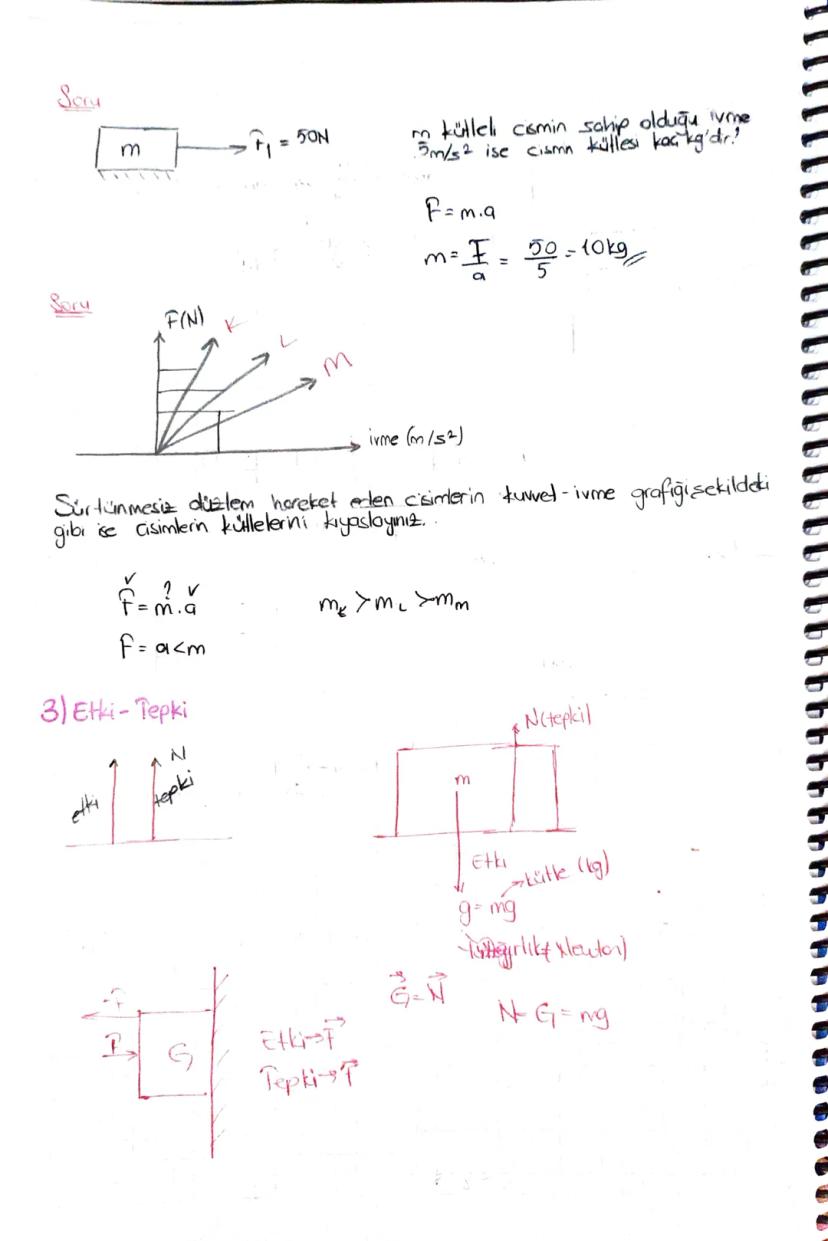 Soru
m
F₁ = 50N
m kütleli cismin sahip olduğu ivme
5m/s² ise cismn kütlesi kaç kg'dır?
F = m.a
m = F/a = 50/5 = 10kg
Soru
F(N)
K
L
M
ivme (m/s²)
Sürtünmesiz düzlem hareket eden cisimlerin kuvvet-ivme grafiği şekildeki
gibi ise cisimlerin kütlelerini kıyaslayınız..
✓ ? ✓
F = m.a
mK > mL > mm
F = a<m
3) Etki-Tepki
N(tepki)
etki
N
tepki
m
Etki
kütle (kg)
g = mg
Newton)
G = N
N = G = mg
G
Etki→F
Tepki→T